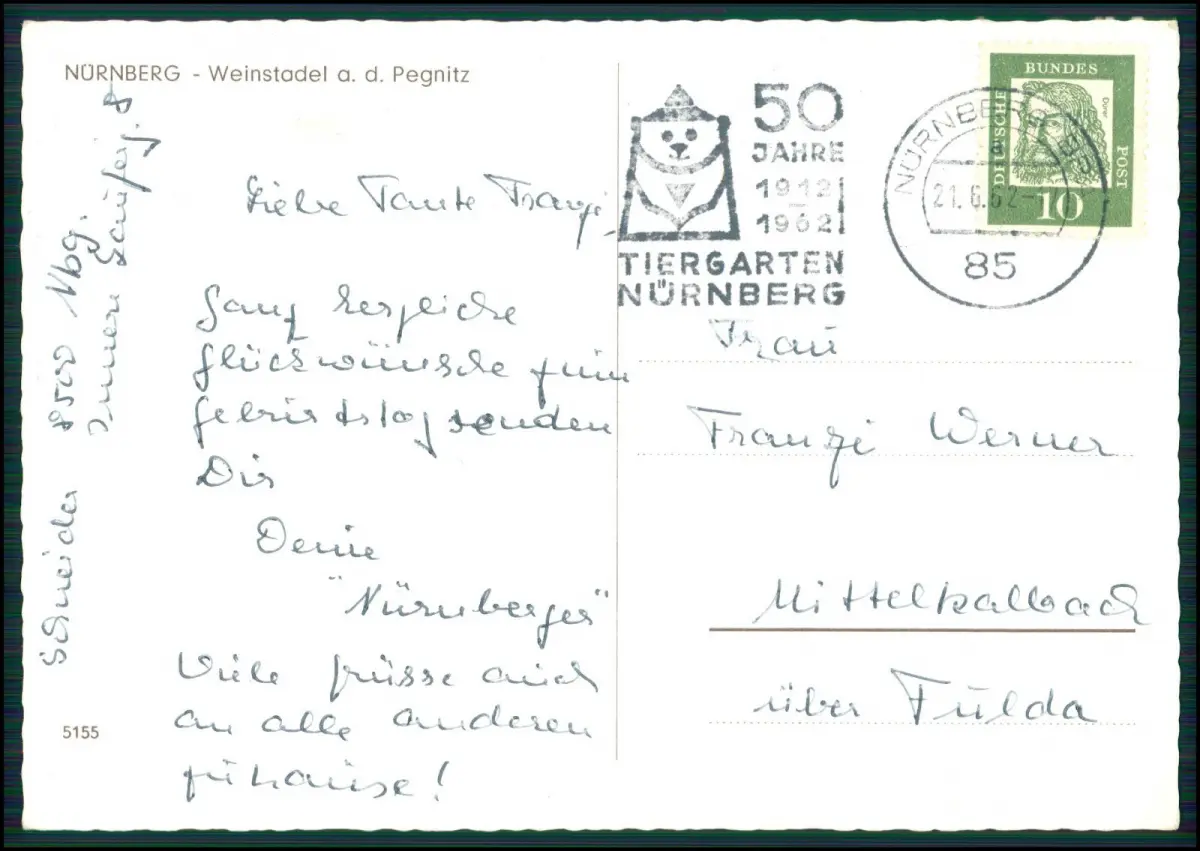 NÜRNBERG - Weinstadel a. d. Pegnitz
Schneider 8500 Nbg.
Innere Laufer g. 8
Liebe Tante Franzi,
Ganz herzliche
Glückwünsche zum
Geburtstag senden
Dir
Deine
"Nürnberger"
Viele Grüsse auch
an alle anderen
zuhause!
5155
50
JAHRE
1912
1962
TIERGARTEN
NÜRNBERG
NÜRNBERG
a
21.6.62
85
DEUTSCHE BUNDES POST
Dürer
10
Frau
Franzi Werner
Mittelkalbach
über Fulda